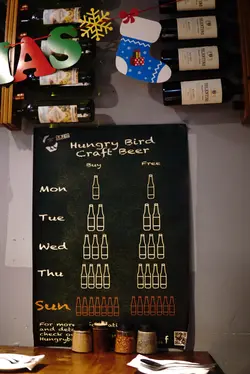 AS
Hungry Bird
Craft Beer
Buy Free
Mon
Tue
Wed
Thu
Sun
For more
and
check